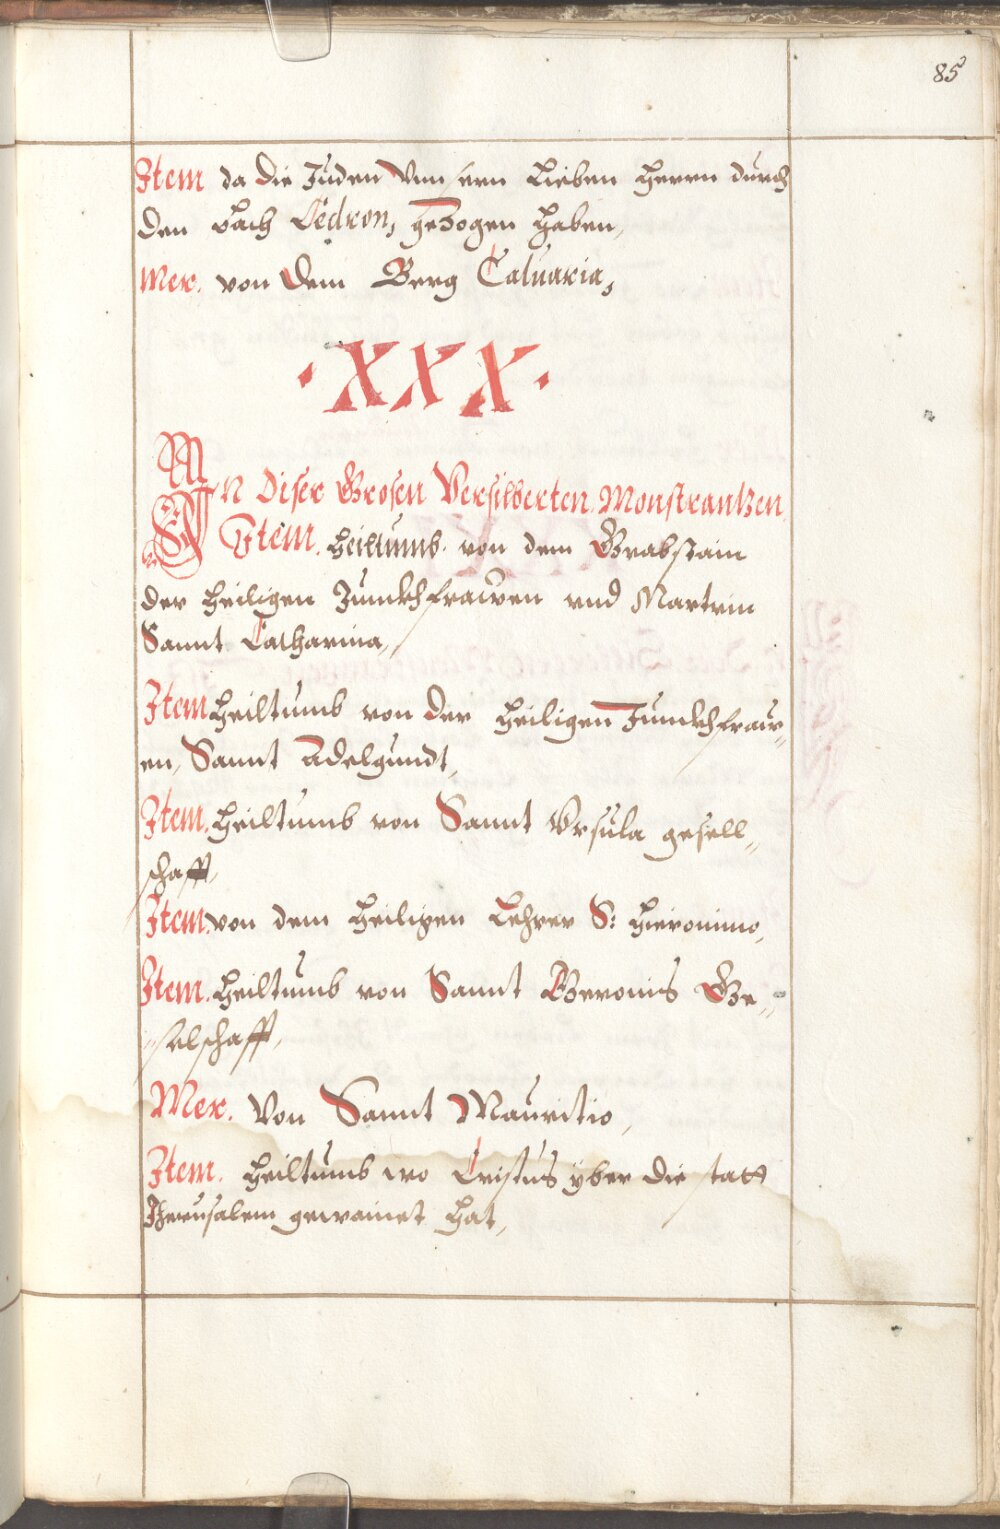 85
Item da die Juden Vnnsern Lieben Herrn durch
den bach Cedron, gezogen haben,
Mer. von dem Berg Caluaria,
·XXX·
IN Diser Grosen Versilberten Monstrantzen
Item. heiltumb. von dem Grabstain
der heiligen Junckhfrawen vnd Martrin
Sannt Catharina,
Item heiltumb von der heiligen Junckhfraw„
en, Sannt Adelgundt,
Item. heiltumb von Sannt Vrsula gesell„
schafft,
Item. von dem heiligen Lehrer S: Hieronimo,
Item. heiltumb von Sannt Geronis Ge„
„selschafft,
Mer. Von Sannt Mauritio,
Item. heiltumb wo Cristus yber die statt
Jherusalem gewainet hat,